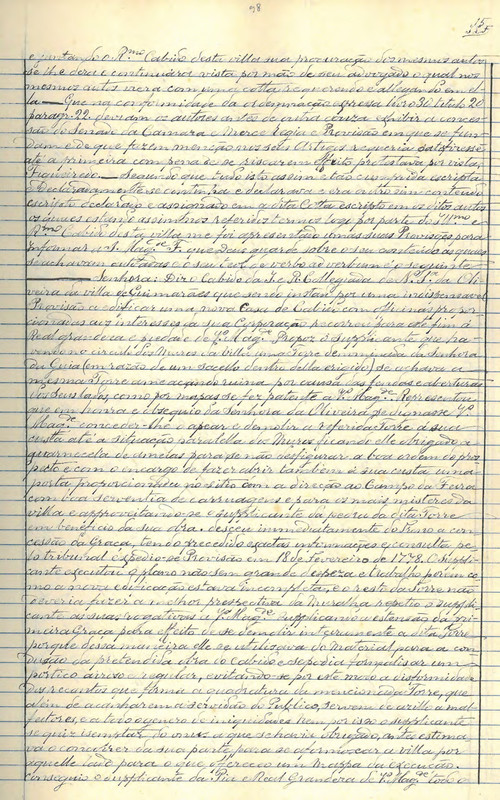 98
e juntando o R.mo Cabido desta villa sua procuração dos mesmos autos
se lhe dera e continuára vista por mão de seu advogado o qual nos
mesmos autos viera com uma cotta requerendo e allegando em el
la — Que na conformidade da ordenação expressa livro 3º titulo 20
paragr. 22. deviam os autores antes de outra couza exibir a conces
são do Senado da Camara e Merce Regia e Provisão em que se fun
dam e de que fazem menção nos seus Artigos requeria satisfizesse
até a primeira com pena de se riscarem
Figueiredo — Segundo que tudo isto assim e tão cumprida escripta
e Declaradamente se continha e declarava e era outrosim contendo
escripto declarado e assignado em a dita Cotta escripto em os ditos autos
os quaes estando assim nos referidos termos logo por parte do Ill.mo e
R.mo Cabido desta villa me foi apresentado umas suas Provisões para
informar a S. Mag.de F. que Deus guarde sobre o seu contheudo as quaes
se achavam outoadas e o seu teor de verbo ad verbum é o seguinte
— Senhora: Diz o Cabido da I. e R. Collegiada de N.ª S.ra da Oli
veira da villa de Guimarães que sendo instado por uma indispensavel
Provisão a edificar uma nova Casa de Cabido com officinas propor
cionadas aos interesses da sua Corporação recorreu para este fim á
Real grandeza e piedade de V.ª Mag.de Propoz o supplicante que ha
vendo no circuito dos Muros da villa uma Torre denominada da Senhora
da Guia (em razão de um sacello dentro della erigido) se achava a
mesma Torre ameaçando ruina por causa das fendas e aberturas
dos sustados, como por mapas se fez patente a V.ª Mag.de Representou
que em honra e obsequio da Senhora da Oliveira se dignasse V.ª
Mag.de conceder-lhe o apear e demolir a referida Torre á sua
custa até a situação paralella do Muro ficando elle obrigado a
guarnecela de ameias para se não desfigurar a boa ordem do pros
pecto e com o encargo de fazer abrir tambem á sua custa uma
porta proporcionada no sitio com a direcção ao Campo da Feira
com boa serventia de carruagens e para os mais misteres da
villa e approveitando-se o supplicante da pedra da dita Torre
em beneficio da sua obra. desceu immediatamente do Throno a con
cessão da Graça, tendo precedido exactas informações e consulta pe
lo tribunal expedio-se Provisão em 18 de Fevereiro de 1778. O suppli
cante executou o plano não sem grande despeza e trabalho porem co
mo a nova edificação estava incompleta, e o resto da Torre não
deveria fazer a melhor prespectiva da Muralha repetio o suppli
cante as suas rogativas a V.ª Mag.de supplicando a extensão da pri
meira Graça para effeito de se demolir inteiramente a dita Torre
porque dessa maneira elle se utilisava do material para a con
clusão da pretendida obra do cabido e se podia formalisar um
portico airoso e regular, evitando-se por este meio a disformidade
dos recantos que forma a quadratura da mencionada Torre, que
além de acanharem a servidão do Publico, servem de azillo a mal
feitores, e a todo o genero de iniquidades nem por isso o supplicante
se quiz isemptar do onus a que se havia obrigado, antes estima
va o concorrer da sua parte para se aformozear a villa por
aquelle lado para o que offereceu um mappa da execução.
Conseguio o supplicante da Pia e Real Grandeza de V.ª Mag.de todo o